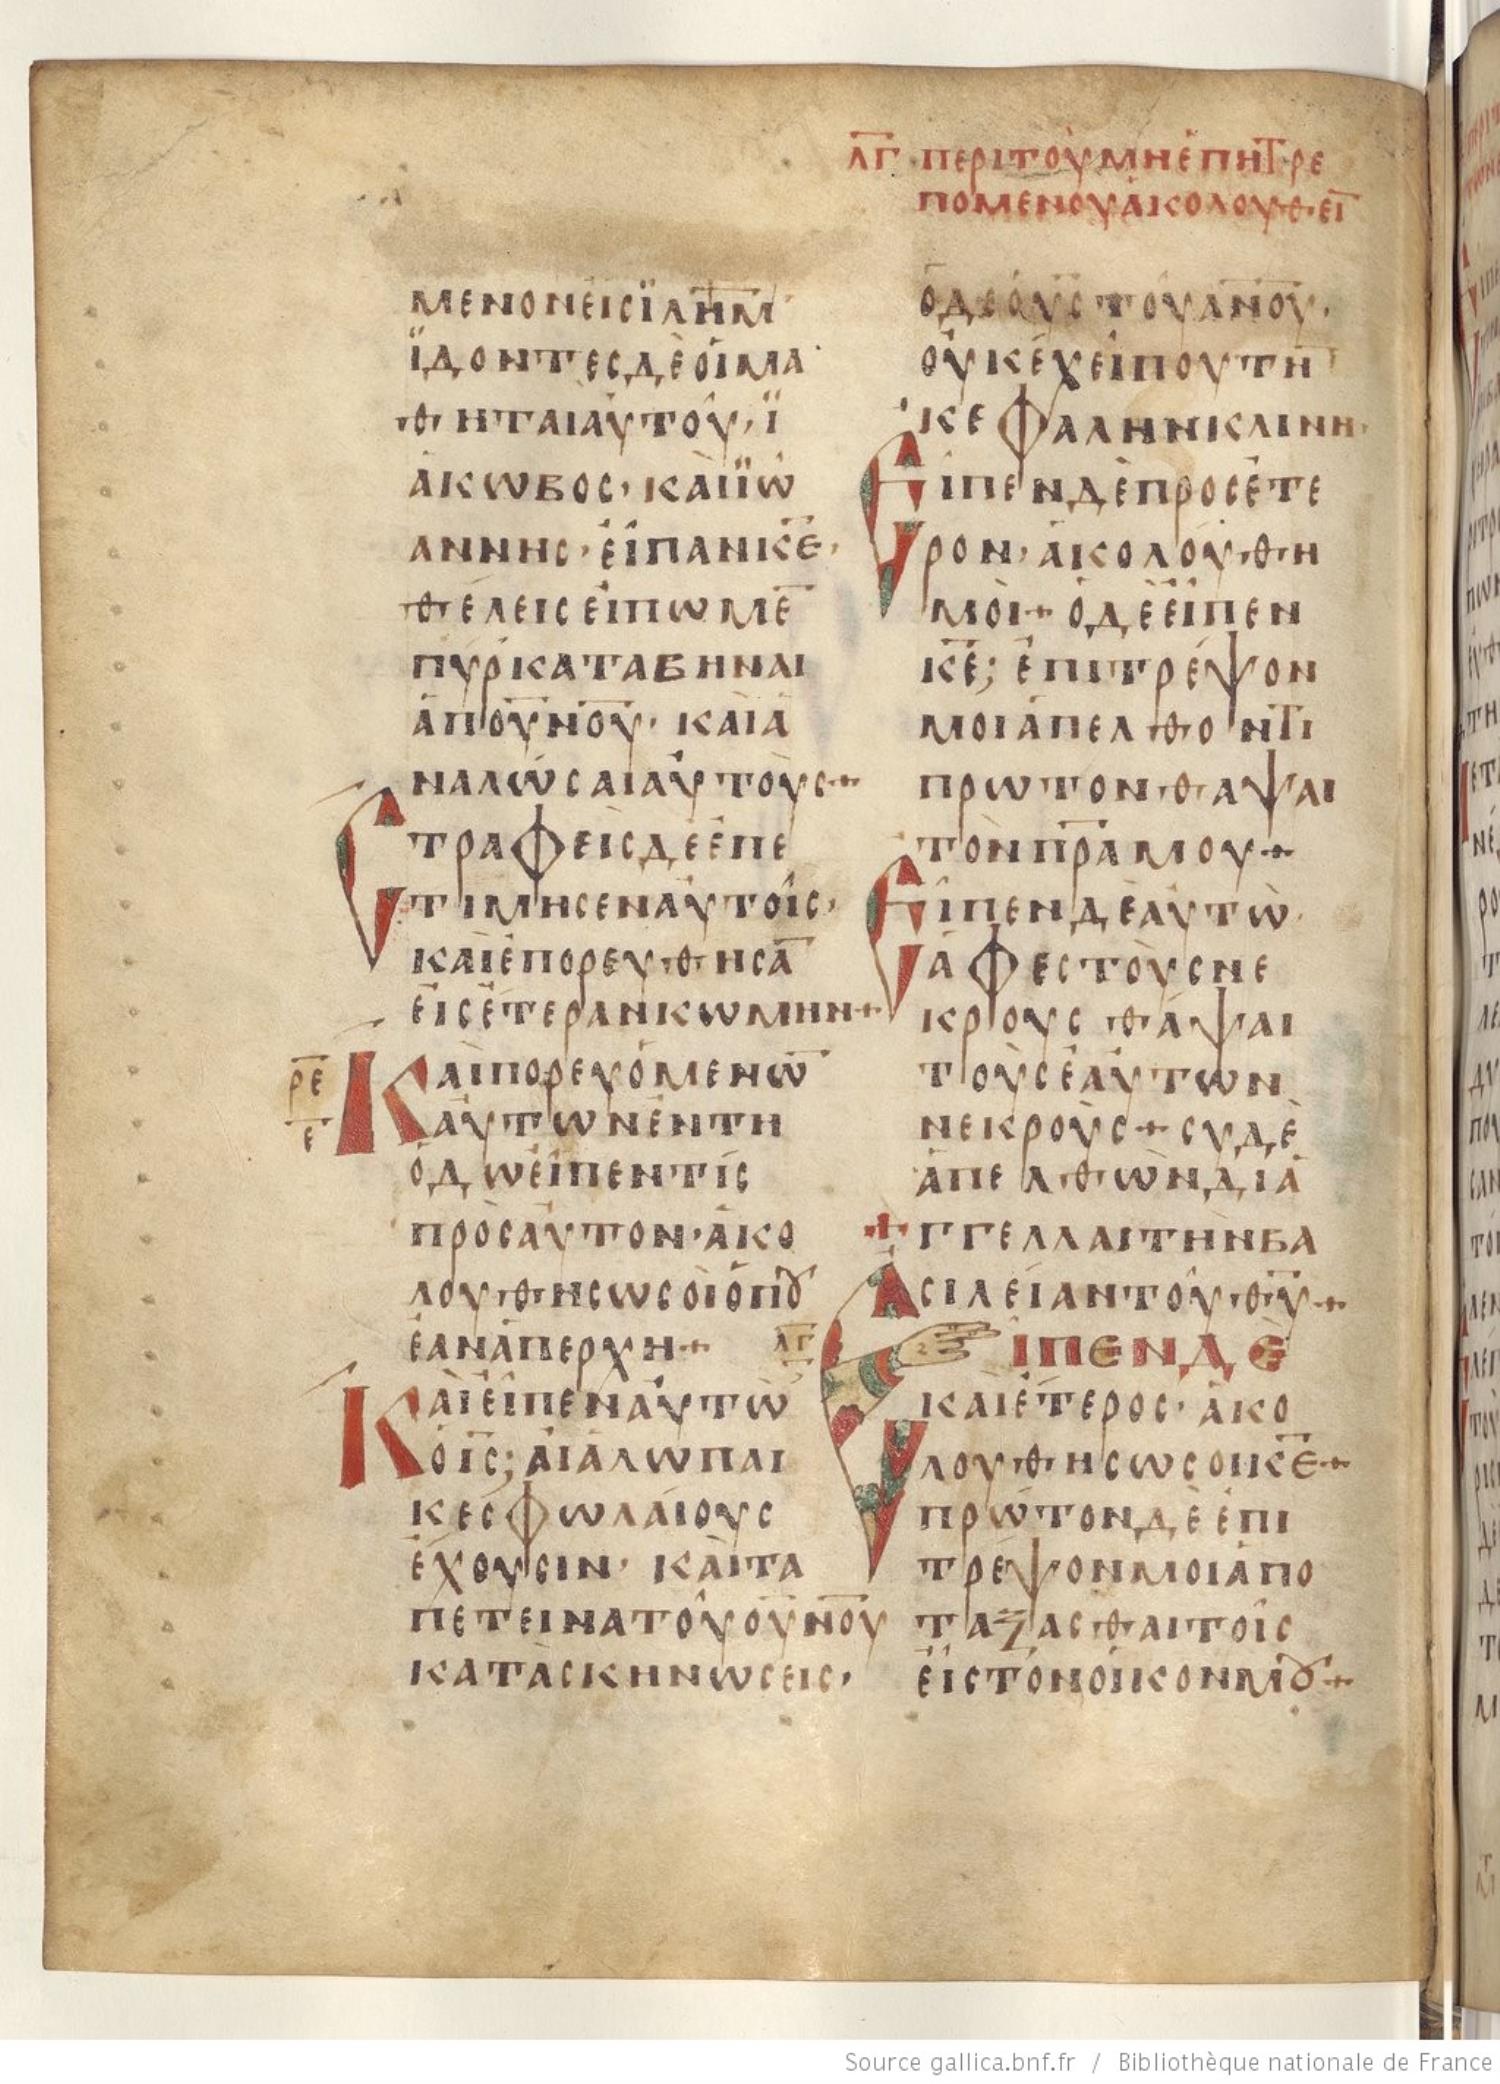 ΛΓ ΠΕΡΙΤΟΥΜΗΕΠΗΤΡΕ
ΠΟΜΕΝΟΥΑΚΟΛΟΥΘΕΙ
ΜΕΝΟΝΕΙCΙΛΗΜ
ΙΔΟΝΤΕCΔΕΟΙΜΑ
ΘΗΤΑΙΑΥΤΟΥ, Ϊ
ΑΚΩΒΟC, ΚΑΙΪΩ
ΑΝΝΗC· ΕΙΠΑΝΚΕ,
ΘΕΛΕΙCΕΙΠΩΜΕ
ΠΥΡΚΑΤΑΒΗΝΑΙ
ΑΠΟΥΝΟΥ· ΚΑΙΑ
ΝΑΛΩCΑΙΑΥΤΟΥC+
CΤΡΑΦΕΙCΔΕΕΠΕ
ΤΙΜΗCΕΝΑΥΤΟΙC,
ΚΑΙΕΠΟΡΕΥΘΗCΑ
ΕΙCΕΤΕΡΑΝΚΩΜΗΝ+
ΡΕ
Ε
ΚΑΙΠΟΡΕΥΟΜΕΝΩ
ΑΥΤΩΝΕΝΤΗ
ΟΔΩΕΙΠΕΝΤΙC
ΠΡΟCΑΥΤΟΝ· ΑΚΟ
ΛΟΥΘΗCΩCΟΙΟΠȢ
ΕΑΝΑΠΕΡΧΗ+
ΚΑΙΕΙΠΕΝΑΥΤΩ
ΟΙC; ΑΙΑΛΩΠΑΙ
ΚΕCΦΩΛΑΙΟΥC
ΕΧΟΥCΙΝ· ΚΑΙΤΑ
ΠΕΤΕΙΝΑΤΟΥΟΥΝΟΥ
ΚΑΤΑCΚΗΝΩCΕΙC,
ΟΔΕΟΥCΤΟΥΑΝΟΥ,
ΟΥΚΕΧΕΙΠΟΥΤΗ
ΚΕΦΑΛΗΝΚΛΙΝΗ·
ΕΙΠΕΝΔΕΠΡΟCΕΤΕ
ΡΟΝ, ΑΚΟΛΟΥΘΗ
ΜΟΙ+ ΟΔΕΕΙΠΕΝ
ΚΕ; ΕΠΙΤΡΕΨΟΝ
ΜΟΙΑΠΕΛΘΟΝΤΙ
ΠΡΩΤΟΝΘΑΨΑΙ
ΤΟΝΠΡΑΜΟΥ+
ΕΙΠΕΝΔΕΑΥΤΩ·
ΑΦΕCΤΟΥCΝΕ
ΚΡΟΥC ΘΑΨΑΙ
ΤΟΥCΕΑΥΤΩΝ
ΝΕΚΡΟΥC+ CΥΔΕ
ΑΠΕΛΘΩΝΔΙΑ
+ΓΓΕΛΛΑΙΤΗΝΒΑ
CΙΛΕΙΑΝΤΟΥΘΥ+
ΛΓ
ΕΙΠΕΝΔΕ
ΚΑΙΕΤΕΡΟC· ΑΚΟ
ΛΟΥΘΗCΩCΟΙΚΕ+
ΠΡΩΤΟΝΔΕΕΠΙ
ΤΡΕΨΟΝΜΟΙΑΠΟ
ΤΑΞΑCΘΑΙΤΟΙC
ΕΙCΤΟΝΟΙΚΟΝΜȢ+
Source gallica.bnf.fr / Bibliothèque nationale de France